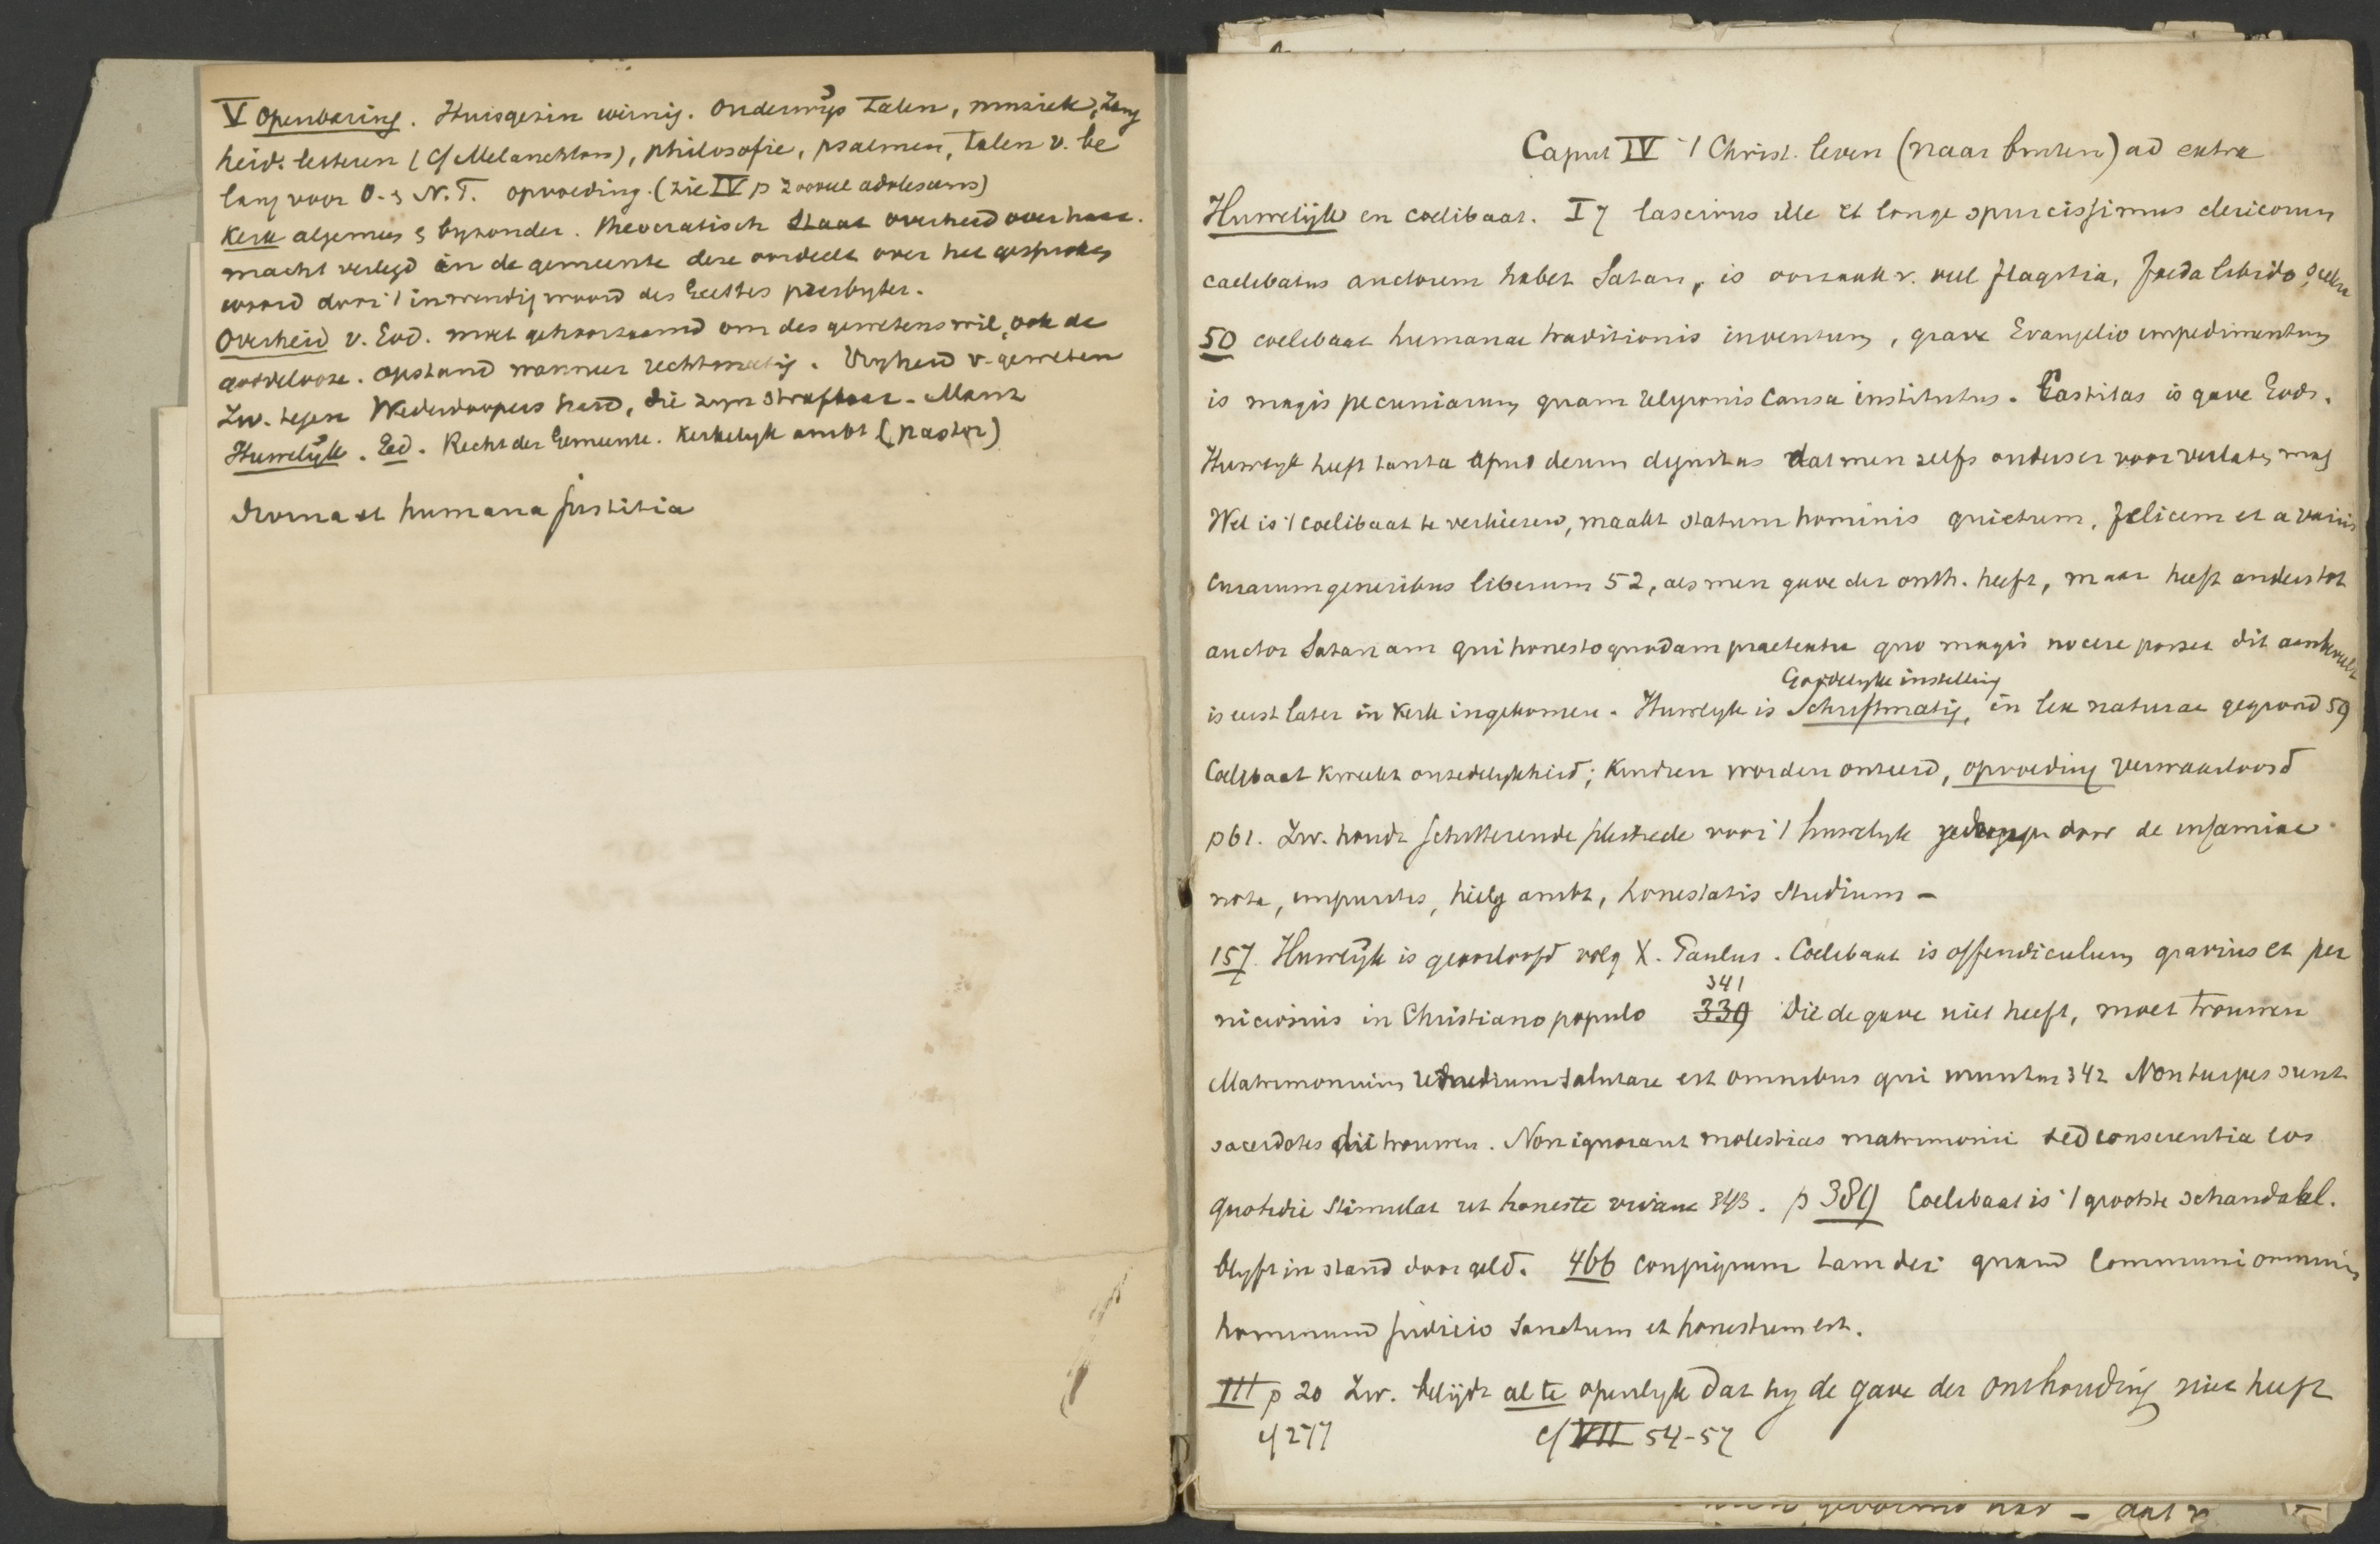 V Openbaring. Huisgezin weinig. Onderwijs Talen, muziek, Zang
heid. letteren (cf Melanchton), philosofie, psalmen, Talen v. be
lang voor O. & N.T. opvoeding. (zie IV p
Kerk algemeen & byzonder. Theocratisch Staat overheid over haar.
macht verlegd in de gemeente deze oordeelt over het gesproken
woord door 't inwendig woord des Geestes presbyter.
Overheid v. God. moet gehoorzaamd om des gewetens wil, ook de
goddelooze. opstand wanneer rechtmatig. Vryheid v. geweten
Zw. tegen Wederdoopers hard, die zyn strafbaar. Manz
Huwelijk. Eed. Recht der Gemeente. Kerkelyk ambt (pastor)
divina et humana justitia
Caput IV 't Christ. leven (naar buiten) ad extra
Huwelijk en coelibaat. I 7 lascivus ille et longe spurcissimus clericorum
caelibatus auctorem habet Satan, is oorzaak v. veel flagitia, foeda libido,
50 coelibaat humanae traditionis inventum, grave Evangelio impedimentum
is magis pecuniarum quam religionis causa institutus. Castitas is gave Gods.
Huwelyk heeft tanta apud deum dignitas dat men zelfs ouders er voor verlaten mag
Wel is 't coelibaat te verkiezen, maakt statum hominis quietum, felicem et a variis
curarum generibus liberum 52, als men gave der onth. heeft, maar heeft anders tot
auctor Satanam qui honesto quodam praetextu quo magis nocere posset dit aanbeveelt
Goddelyke instelling
is eerst later in Kerk ingekomen. Huwelyk is Schriftmatig, in lex naturae gegrond 59
Coelibaat kweekt onzedelykheid; kindren worden onteerd, opvoeding verwaarloosd
p 61. Zw. houdt schitterende pleitrede voor 't huwelyk gedrongen door de infamiae
nota, impuritas, heilig ambt, honestatis studium –
157. Huwelijk is geoorloofd volg X. Paulus. Coelibaat is offendiculum gravius et per
341
niciosius in Christiano populo 339 Die de gave niet heeft, moet trouwen
Matrimonium remedium salutare est omnibus qui uruntur 342 Non turpes sunt
sacerdotes die trouwen. Non ignorant molestias matrimonii sed conscientia eos
quotidie stimulat ut honeste vivant 343. p 389 Coelibaat is 't grootste schandaal.
blyft in stand door geld. 466 conjugium tam dei quam communi omnium
hominum judicio sanctum et honestum est.
III p 20 Zw. belijdt al te openlyk dat hy de gave der onthouding niet heeft
cf 277 cf VII 54-57